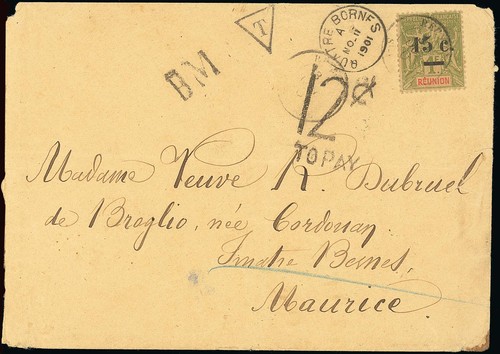 BM
T
QUATRE BORNES
A
NO 11
1901
15 c.
RÉUNION
12c
TO PAY
Madame Veuve R. Dubruel
de Broglio, née Cordouan
Quatre Bornes,
Maurice.